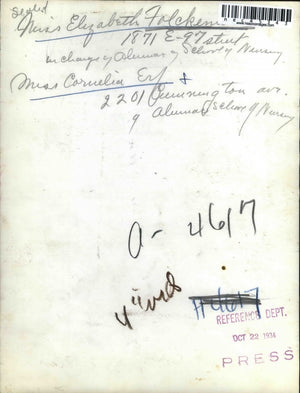 seated
Miss Elizabeth Folckemer
1871 E-97 street
in charge of Alumae of School of Nursing
Miss Cornelia Erf
2201 Cunnington ave.
of Alumae School of Nursing
A- 4617
4" wide
#4617
REFERENCE DEPT.
OCT 22 1934
PRESS